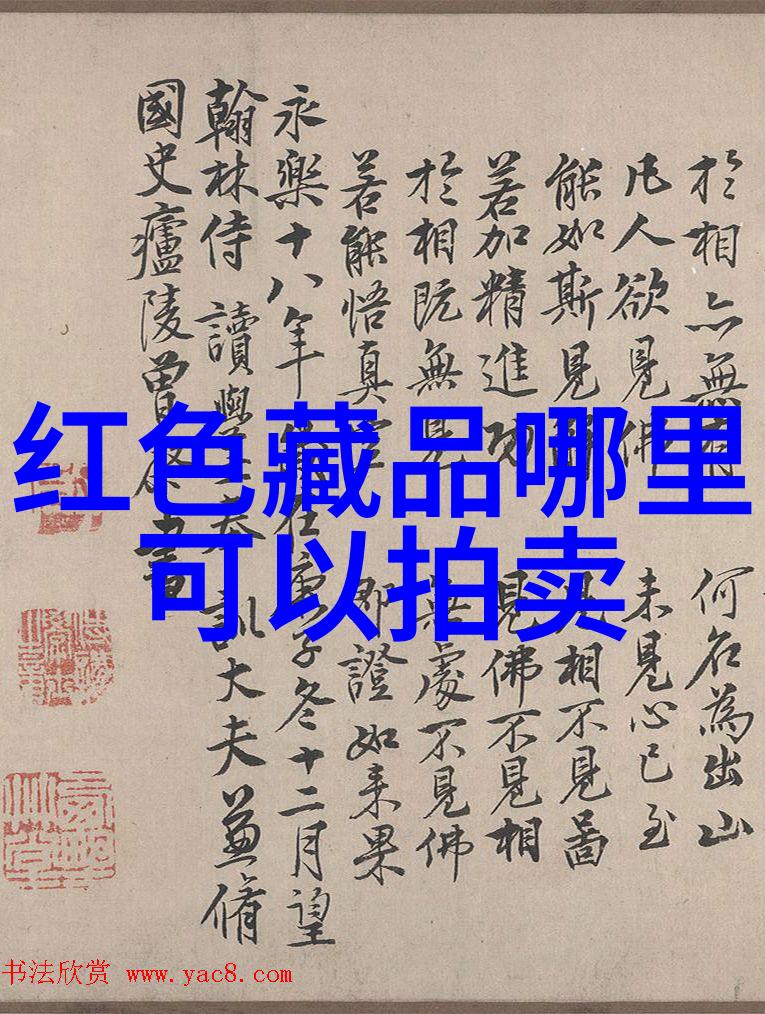 於相亦無有 何名為出山
凡人欲見佛 未見心已至
能如斯見解 相不見啚
若加精進功 見佛不見相
於相既無見 無處不見佛
若能悟真空 即證如来果
永樂十八年歲在庚子冬十二月望
翰林侍讀學士奉訓大夫兼脩
國史廬陵曾棨書
红色藏品哪里
可以拍卖
书法欣赏 www.yac8.com